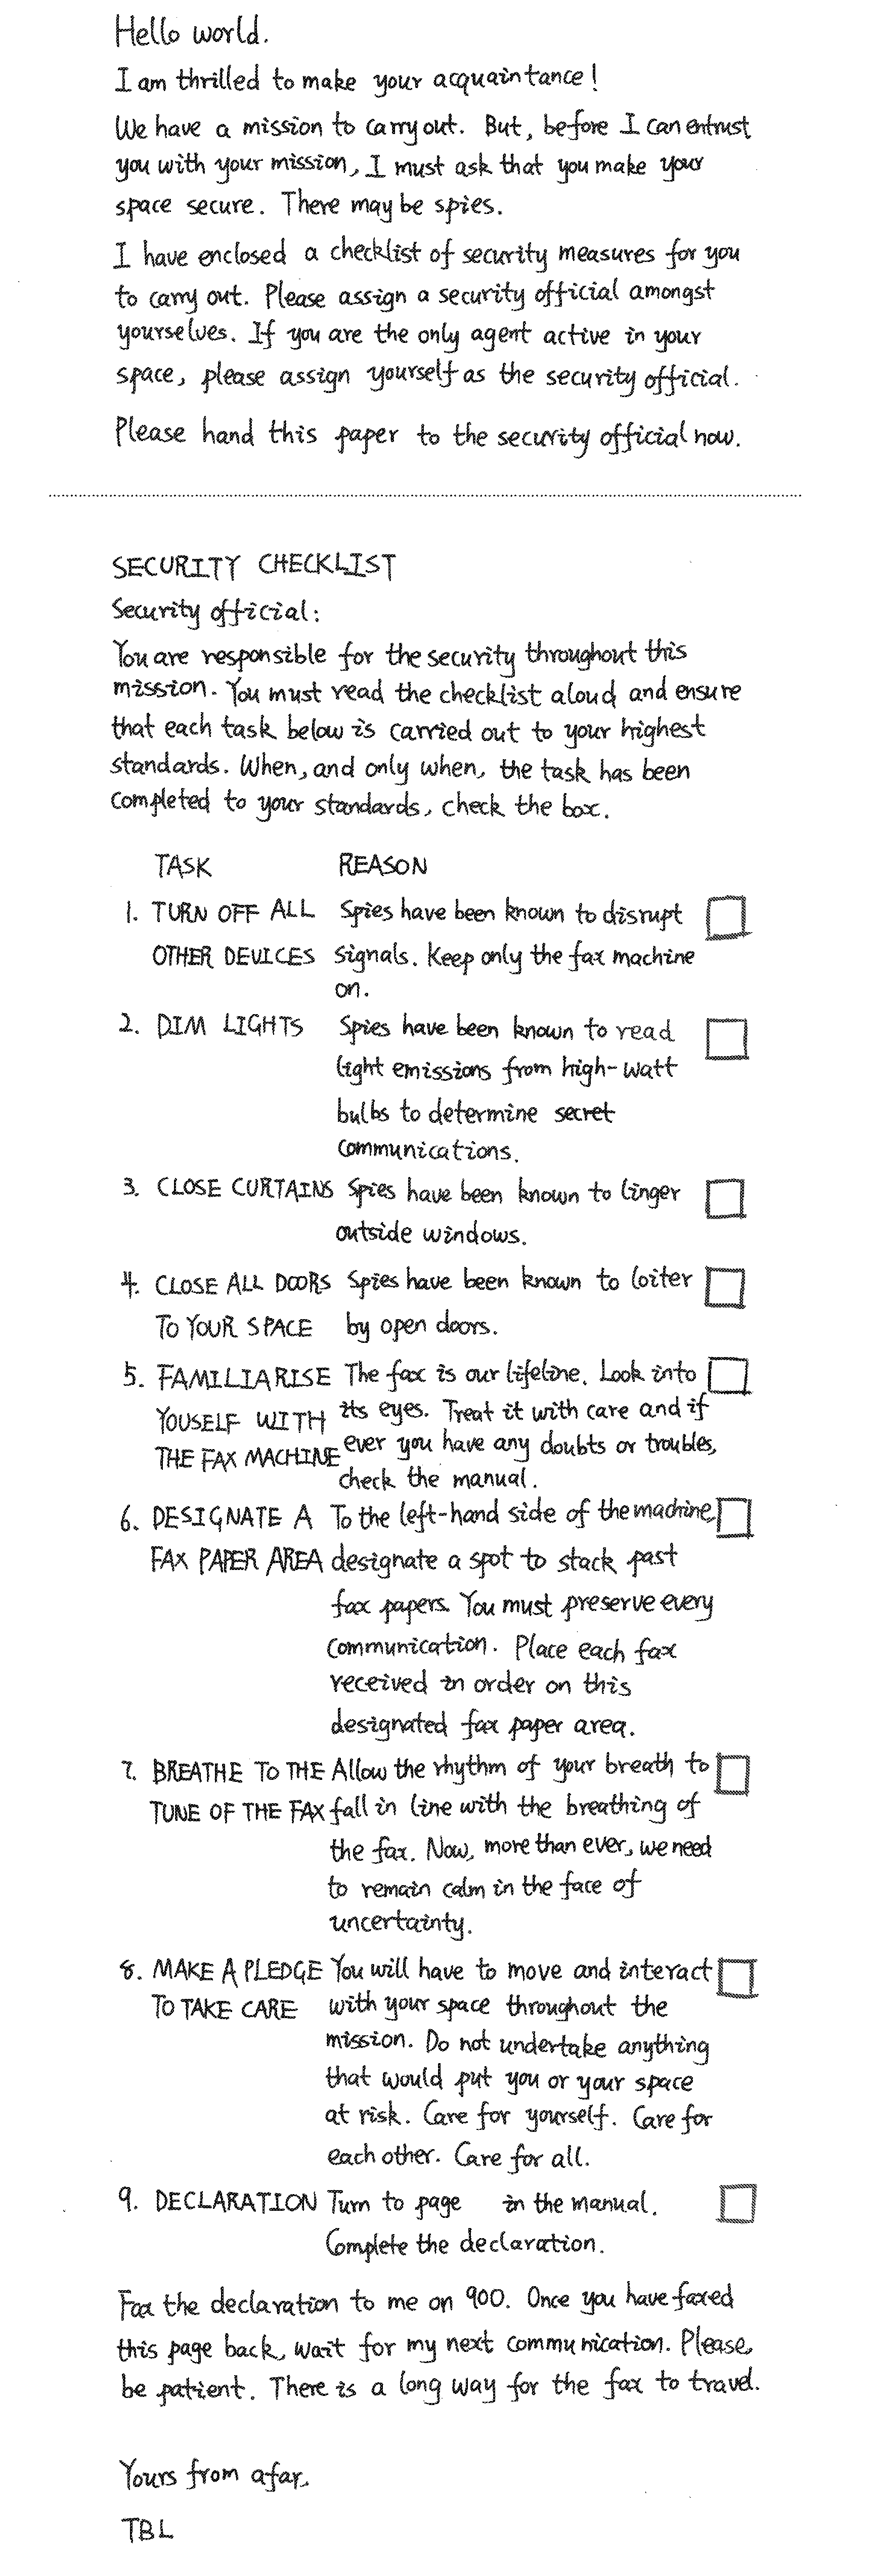 Hello world.
I am thrilled to make your acquaintance!
We have a mission to carry out. But, before I can entrust
you with your mission, I must ask that you make your
space secure. There may be spies.
I have enclosed a checklist of security measures for you
to carry out. Please assign a security official amongst
yourselves. If you are the only agent active in your
space, please assign yourself as the security official.
Please hand this paper to the security official now.
SECURITY CHECKLIST
Security official:
You are responsible for the security throughout this
mission. You must read the checklist aloud and ensure
that each task below is carried out to your highest
standards. When, and only when, the task has been
completed to your standards, check the box.
TASK REASON
1. TURN OFF ALL Spies have been known to disrupt
OTHER DEVICES signals. Keep only the fax machine
on.
2. DIM LIGHTS Spies have been known to read
light emissions from high-watt
bulbs to determine secret
communications.
3. CLOSE CURTAINS Spies have been known to linger
outside windows.
4. CLOSE ALL DOORS Spies have been known to loiter
TO YOUR SPACE by open doors.
5. FAMILIARISE The fax is our lifeline. Look into
YOUSELF WITH its eyes. Treat it with care and if
THE FAX MACHINE ever you have any doubts or troubles,
check the manual.
6. DESIGNATE A To the left-hand side of the machine,
FAX PAPER AREA designate a spot to stack past
fax papers. You must preserve every
communication. Place each fax
received in order on this
designated fax paper area.
7. BREATHE TO THE Allow the rhythm of your breath to
TUNE OF THE FAX fall in line with the breathing of
the fax. Now, more than ever, we need
to remain calm in the face of
uncertainty.
8. MAKE A PLEDGE You will have to move and interact
TO TAKE CARE with your space throughout the
mission. Do not undertake anything
that would put you or your space
at risk. Care for yourself. Care for
each other. Care for all.
9. DECLARATION Turn to page in the manual.
Complete the declaration.
Fax the declaration to me on 900. Once you have faxed
this page back, wait for my next communication. Please,
be patient. There is a long way for the fax to travel.
Yours from afar,
TBL